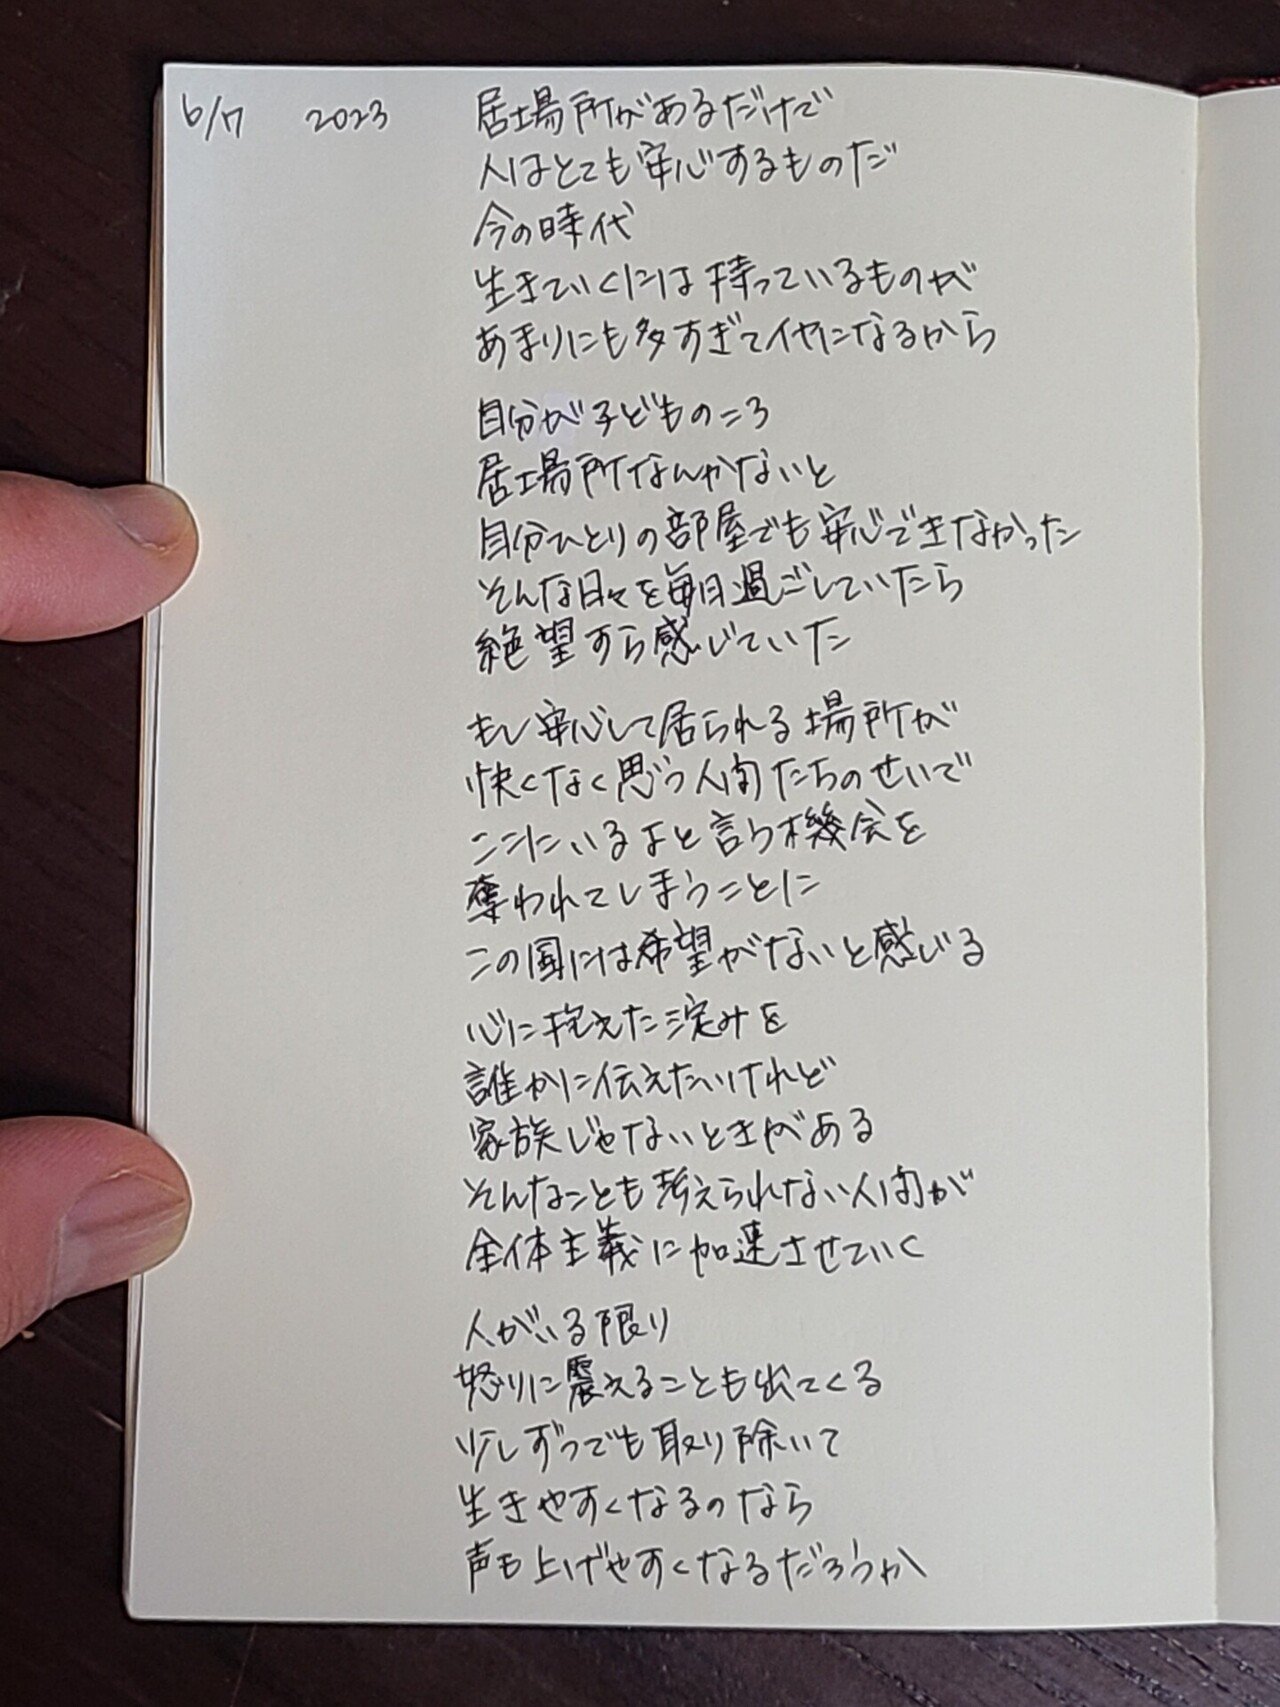 6/7 2023 居場所があるだけで
人はとても安心するものだ
今の時代
生きていくには持っているものが
あまりにも多すぎてイヤになるから
自分が子どものころ
居場所なんかないと
自分ひとりの部屋でも安心できなかった
そんな日々を毎日過ごしていたら
絶望すら感じていた
もし安心して居られる場所が
快くなく思う人間たちのせいで
ここにいるよと言う機会を
奪われてしまうことに
この国には希望がないと感じる
心に抱えた淀みを
誰かに伝えたいけれど
家族じゃないときがある
そんなことも考えられない人間が
全体主義に加速させていく
人がいる限り
怒りに震えることも出てくる
少しずつでも取り除いて
生きやすくなるのなら
声も上げやすくなるだろうか